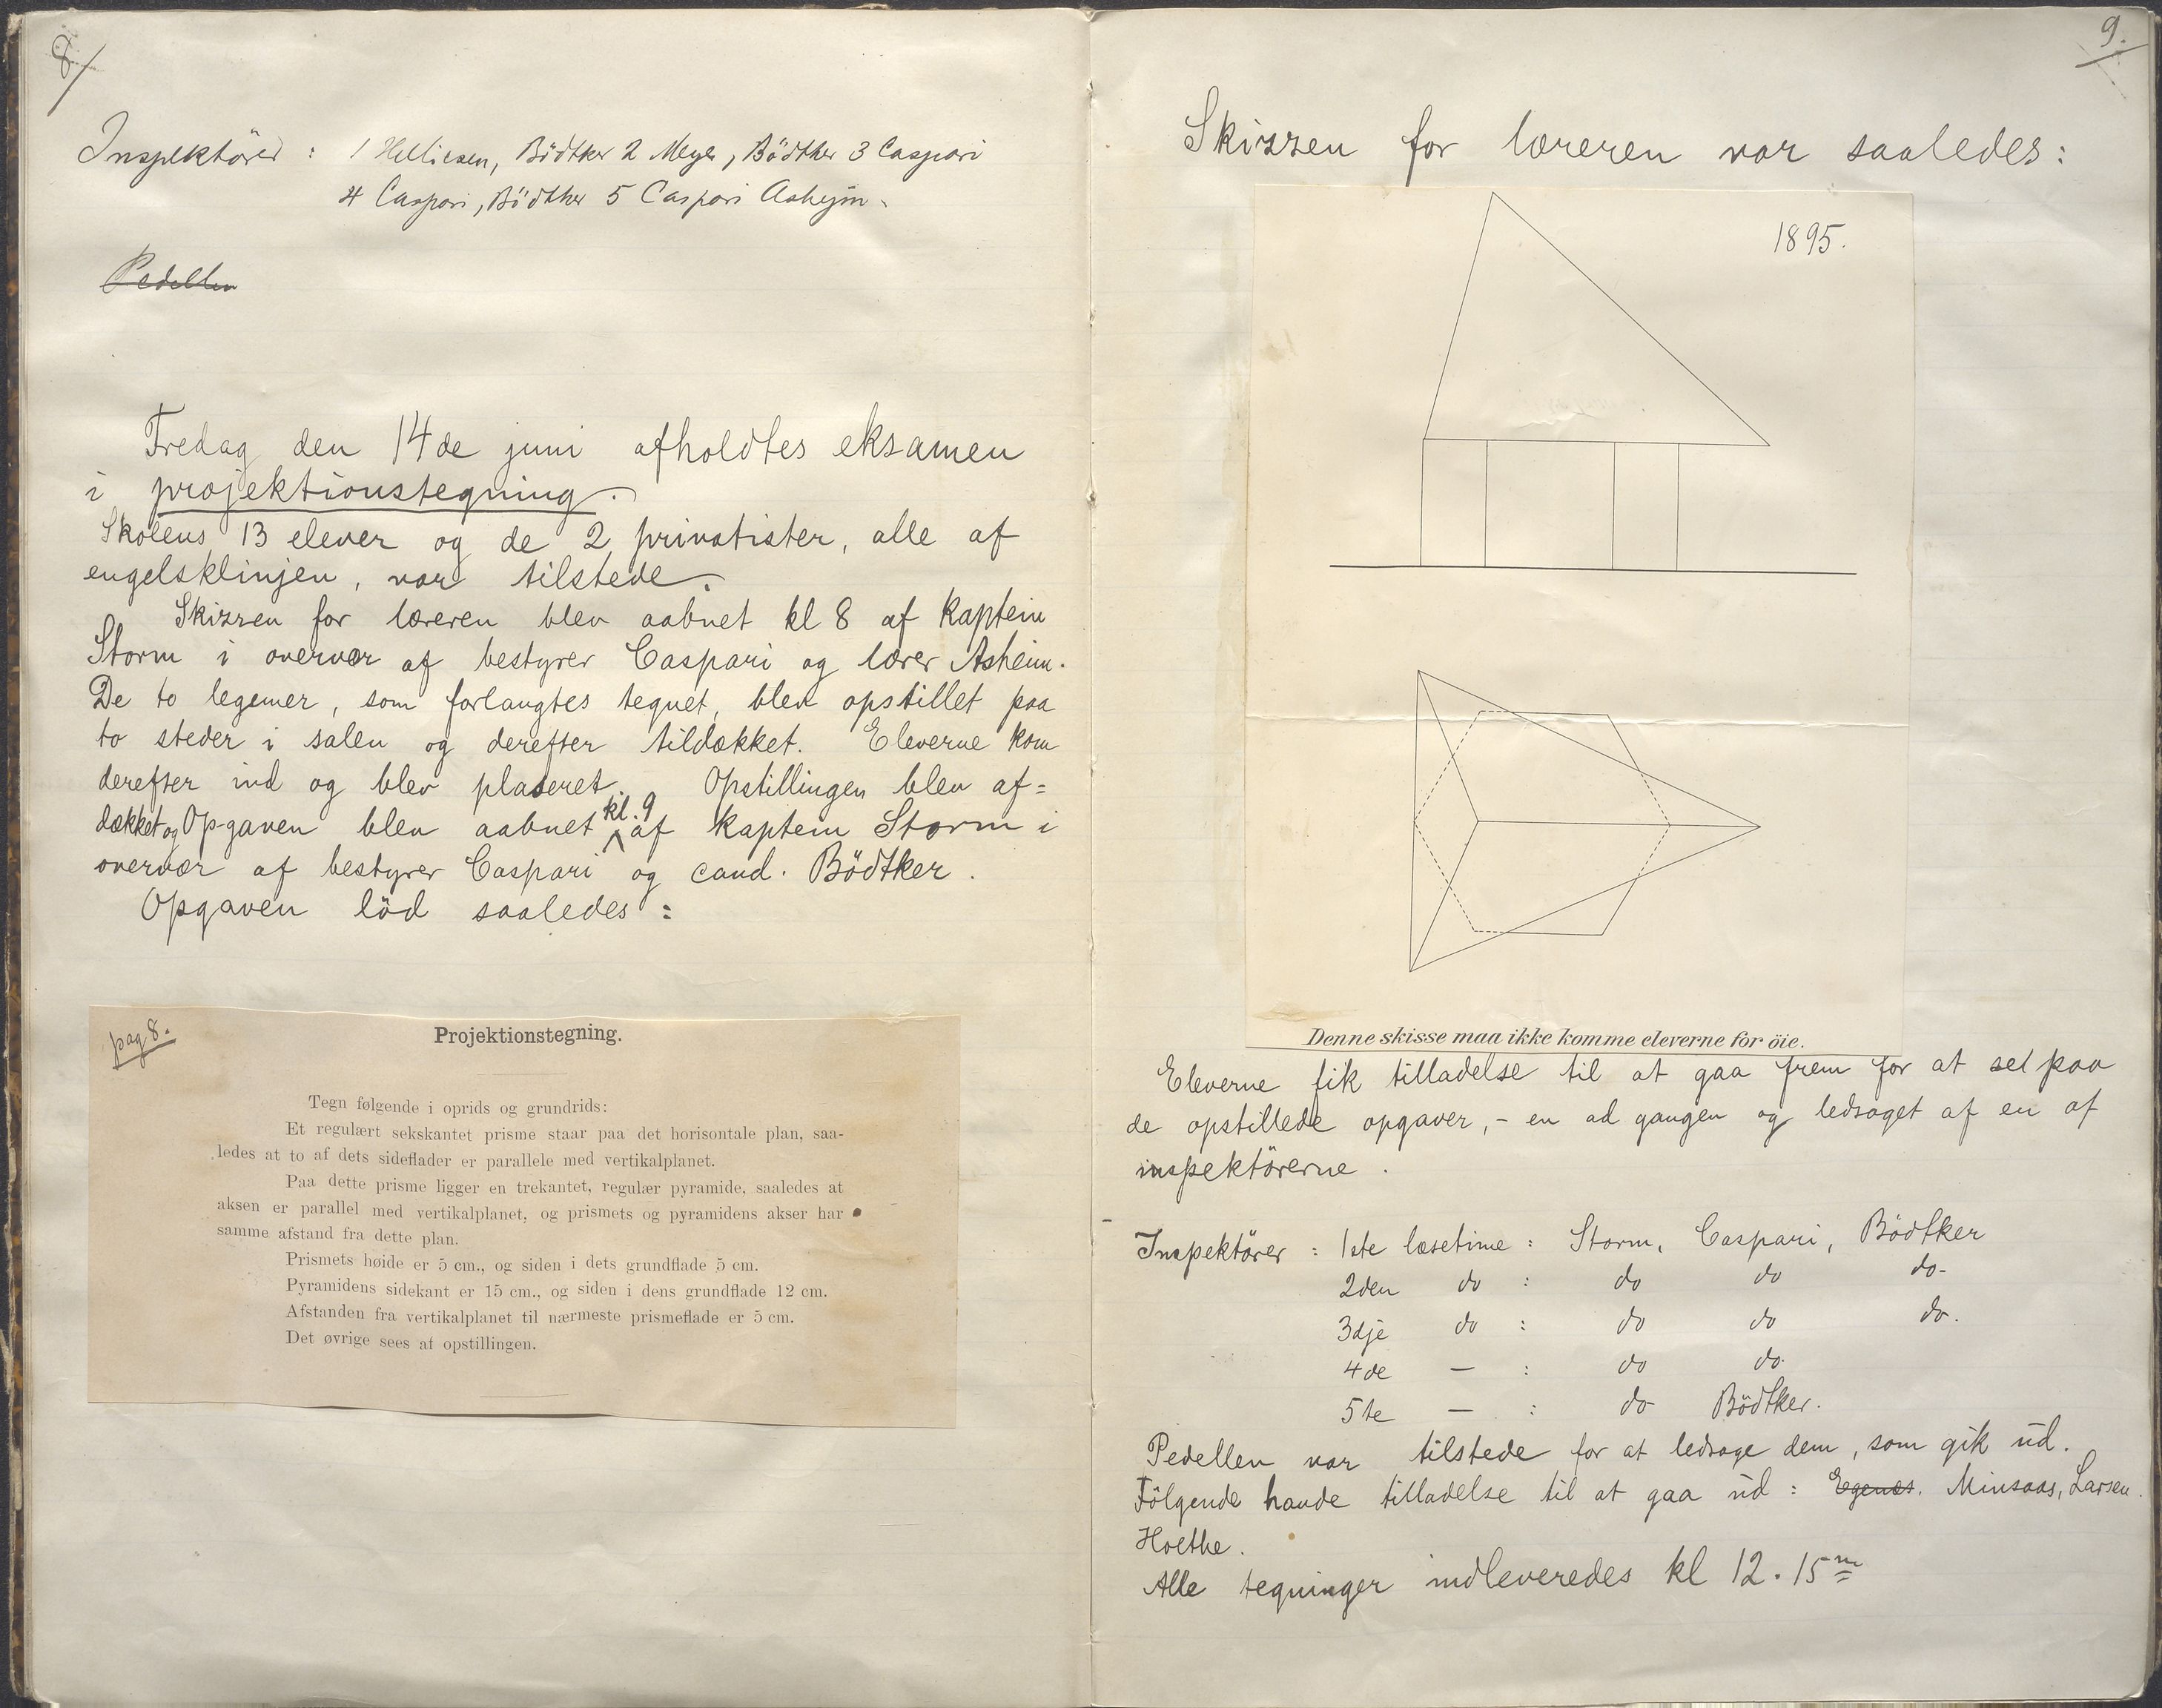 8/
Inspektører : 1 Helliesen, Bödtker 2 Meyer, Bödtker 3 Caspari
4 Caspari, Bödtker 5 Caspari Asheim.
Pedellen
Fredag den 14de juni afholdtes eksamen
i projektionstegning.
Skolens 13 elever og de 2 privatister, alle af
engelsklinjen, var tilstede.
Skizzen for læreren blev aabnet kl 8 af kaptein
Storm i overvær af bestyrer Caspari og lærer Asheim.
De to legemer, som forlangtes tegnet, blev opstillet paa
to steder i salen og derefter tildækket. Eleverne kom
derefter ind og blev plaseret. Opstillingen blev af=
dækket og Opgaven blev aabnet kl. 9 af kaptein Storm i
overvær af bestyrer Caspari og cand. Bödtker.
Opgaven löd saaledes :
pag 8.
Projektionstegning.
Tegn følgende i oprids og grundrids:
Et regulært sekskantet prisme staar paa det horisontale plan, saa-
ledes at to af dets sideflader er parallele med vertikalplanet.
Paa dette prisme ligger en trekantet, regulær pyramide, saaledes at
aksen er parallel med vertikalplanet, og prismets og pyramidens akser har
samme afstand fra dette plan.
Prismets høide er 5 cm., og siden i dets grundflade 5 cm.
Pyramidens sidekant er 15 cm., og siden i dens grundflade 12 cm.
Afstanden fra vertikalplanet til nærmeste prismeflade er 5 cm.
Det øvrige sees af opstillingen.
9.
Skizzen for læreren var saaledes :
1895.
Denne skisse maa ikke komme eleverne for öie.
Eleverne fik tilladelse til at gaa frem for at se paa
de opstillede opgaver, - en ad gangen og ledsaget af en af
inspektörerne.
Inspektörer : 1ste læsetime : Storm, Caspari, Bödtker
2den do : do do do-
3dje do : do do do.
4de — : do do
5te — : do Bödtker.
Pedellen var tilstede for at ledsage dem, som gik ud.
Fölgende havde tilladelse til at gaa ud : Egenæs. Minsaas, Larsen.
Holthe.
Alle tegninger indleveredes kl 12. 15 m